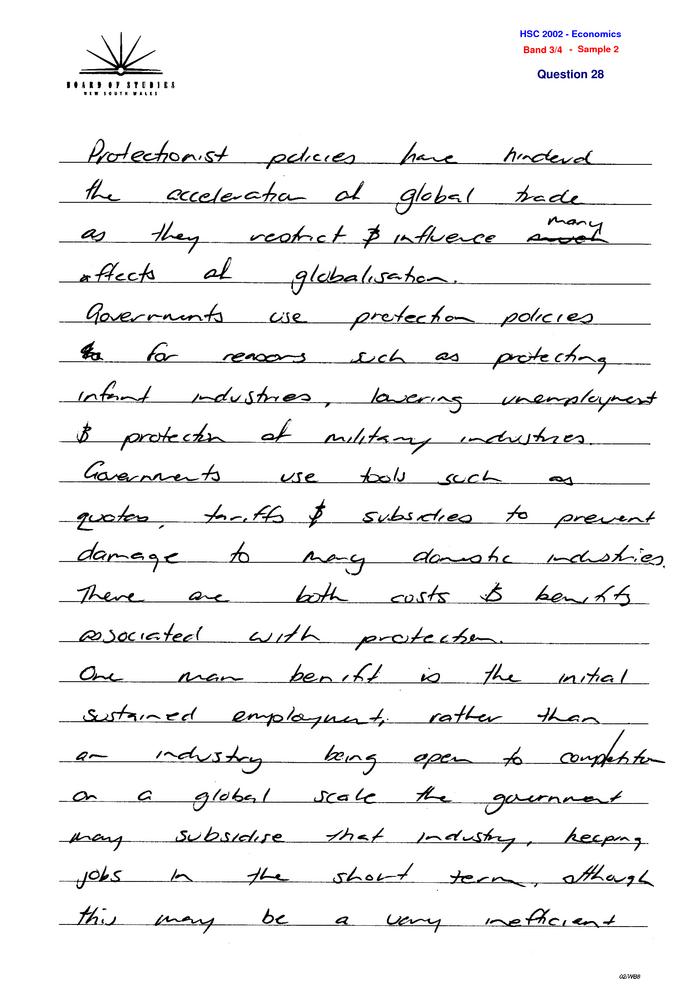 HSC 2002 - Economics
Band 3/4 - Sample 2
Question 28
BOARD OF STUDIES
NEW SOUTH WALES
Protectionist policies have hinderd
the acceleration of global trade
as they restrict & influence many
affects of globalisation.
Governments use protection policies
for reasons such as protecting
infant industries, lowering unemployment
& protectin of military industries.
Governments use tools such as
quotas, tariffs & subsidies to prevent
damage to many domestic industries.
There are both costs & benifits
associated with protection.
One main benifit is the initial
sustained employment, rather than
an industry being open to competition
on a global scale the government
may subsidise that industry, keeping
jobs in the short term, although
this may be a very inefficient
02/WB8